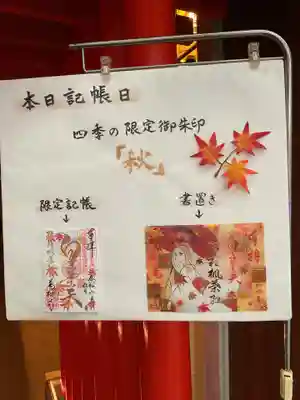 本日記帳日
四季の限定御朱印
「秋」
限定記帳
↓
書置き
↓